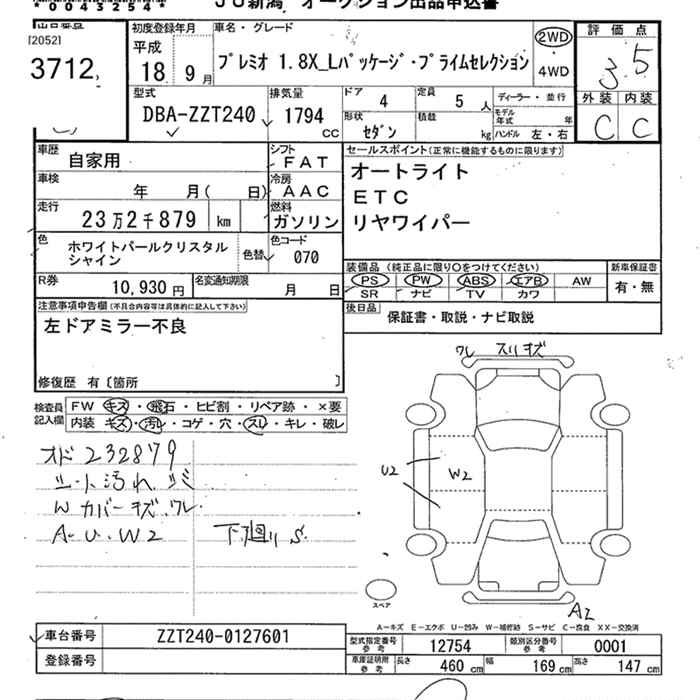 *00432544*
JU新潟 オークション出品申込書
出品番号
[2052]
3712
初度登録年月
平成
18年 9月
車名・グレード
プレミオ 1.8X_Lパッケージ・プライムセレクション
2WD
・
4WD
評価点
3.5
外装 内装
C C
型式
DBA-ZZT240
排気量
1794
cc
ドア 4
定員 5 人
形状 セダン
積載 kg
ディーラー・並行
モデル年式 年
ハンドル 左・右
車歴 自家用
シフト FAT
車検 年 月( 日)
冷房 AAC
走行 23万2千879 km
燃料 ガソリン
色 ホワイトパールクリスタルシャイン
色替
色コード 070
R券 10,930 円
名変通知期限 月 日
セールスポイント(正常に機能するものに限ります)
オートライト
ETC
リヤワイパー
装備品 (純正品に限り○をつけてください)
PS PW ABS エアB AW
SR ナビ TV カワ
新車保証書
有・無
後日品 保証書・取説・ナビ取説
注意事項申告欄(不具合内容等は具体的に記入して下さい)
左ドアミラー不良
修復歴 有〔箇所 〕
検査員記入欄
FW キズ・飛石・ヒビ割・リペア跡・×要
内装 キズ・汚レ・コゲ・穴・スレ・キレ・破レ
オド 232879
シート汚れ スミ
Wカバーキズ.ワレ.
A.U.W2 下廻りS.
ワレ スリキズ
U2
W2
A2
スペア
A-キズ E-エクボ U-凹み W-補修跡 S-サビ C-腐食 XX-交換済
車台番号 ZZT240-0127601
登録番号
型式指定番号 参考 12754
類別区分番号 参考 0001
車庫証明用 参考 長さ 460 cm 幅 169 cm 高さ 147 cm